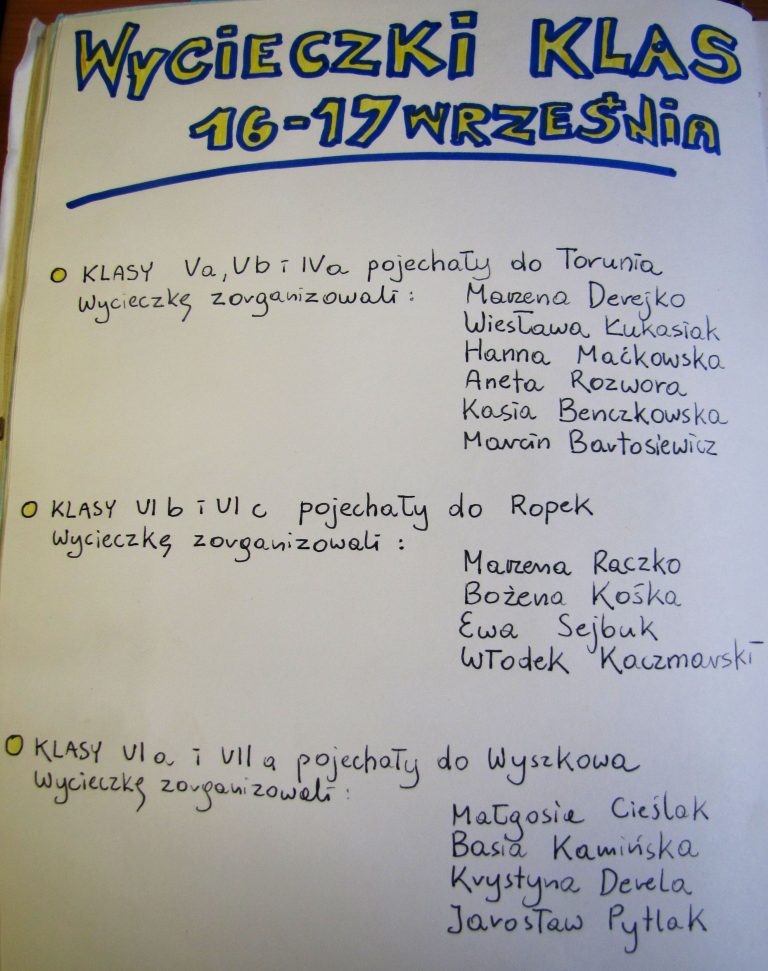 WYCIECZKI KLAS
16-17 WRZEŚNIA
KLASY Va, Vb i IVa pojechały do Torunia
Wycieczkę zorganizowali: Marzena Derejko
Wiesława Łukasiak
Hanna Maćkowska
Aneta Rozwora
Kasia Benczkowska
Marcin Bartosiewicz
KLASY VI b i VI c pojechały do Ropek
Wycieczkę zorganizowali:
Marzena Raczko
Bożena Kośka
Ewa Sejbuk
Włodek Kaczmarski
KLASY VI a i VII a pojechały do Wyszkowa
Wycieczkę zorganizowali:
Małgosia Cieślak
Basia Kamińska
Krystyna Derela
Jarosław Pytlak